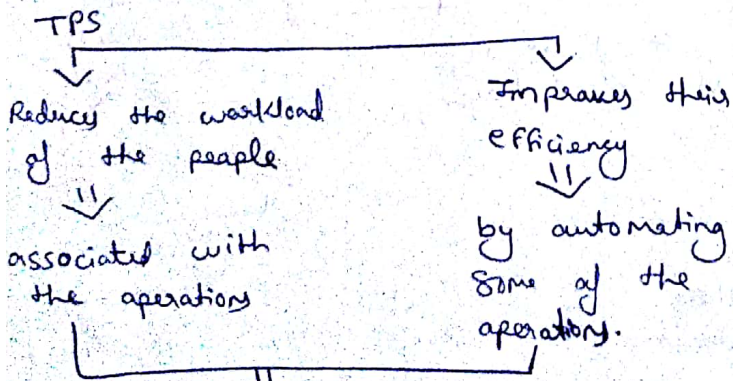 TPS
Reduces the workload
of the people
associated with
the operations
Improves their
efficiency
by automating
some of the
operations.